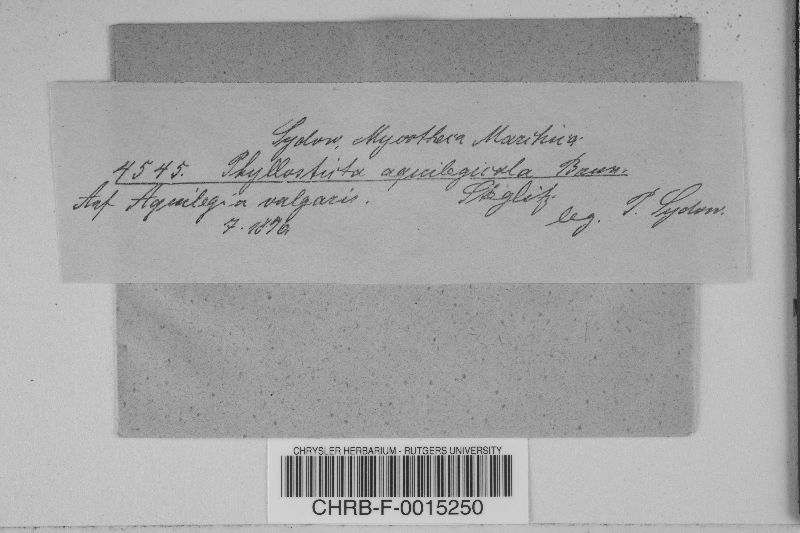 Sydow, Mycotheca Marchica
4545. Phyllosticta aquilegicola Brun.
Auf Aquilegia vulgaris. Steglitz
7. 1896 leg. P. Sydow.
CHRYSLER HERBARIUM - RUTGERS UNIVERSITY
CHRB-F-0015250